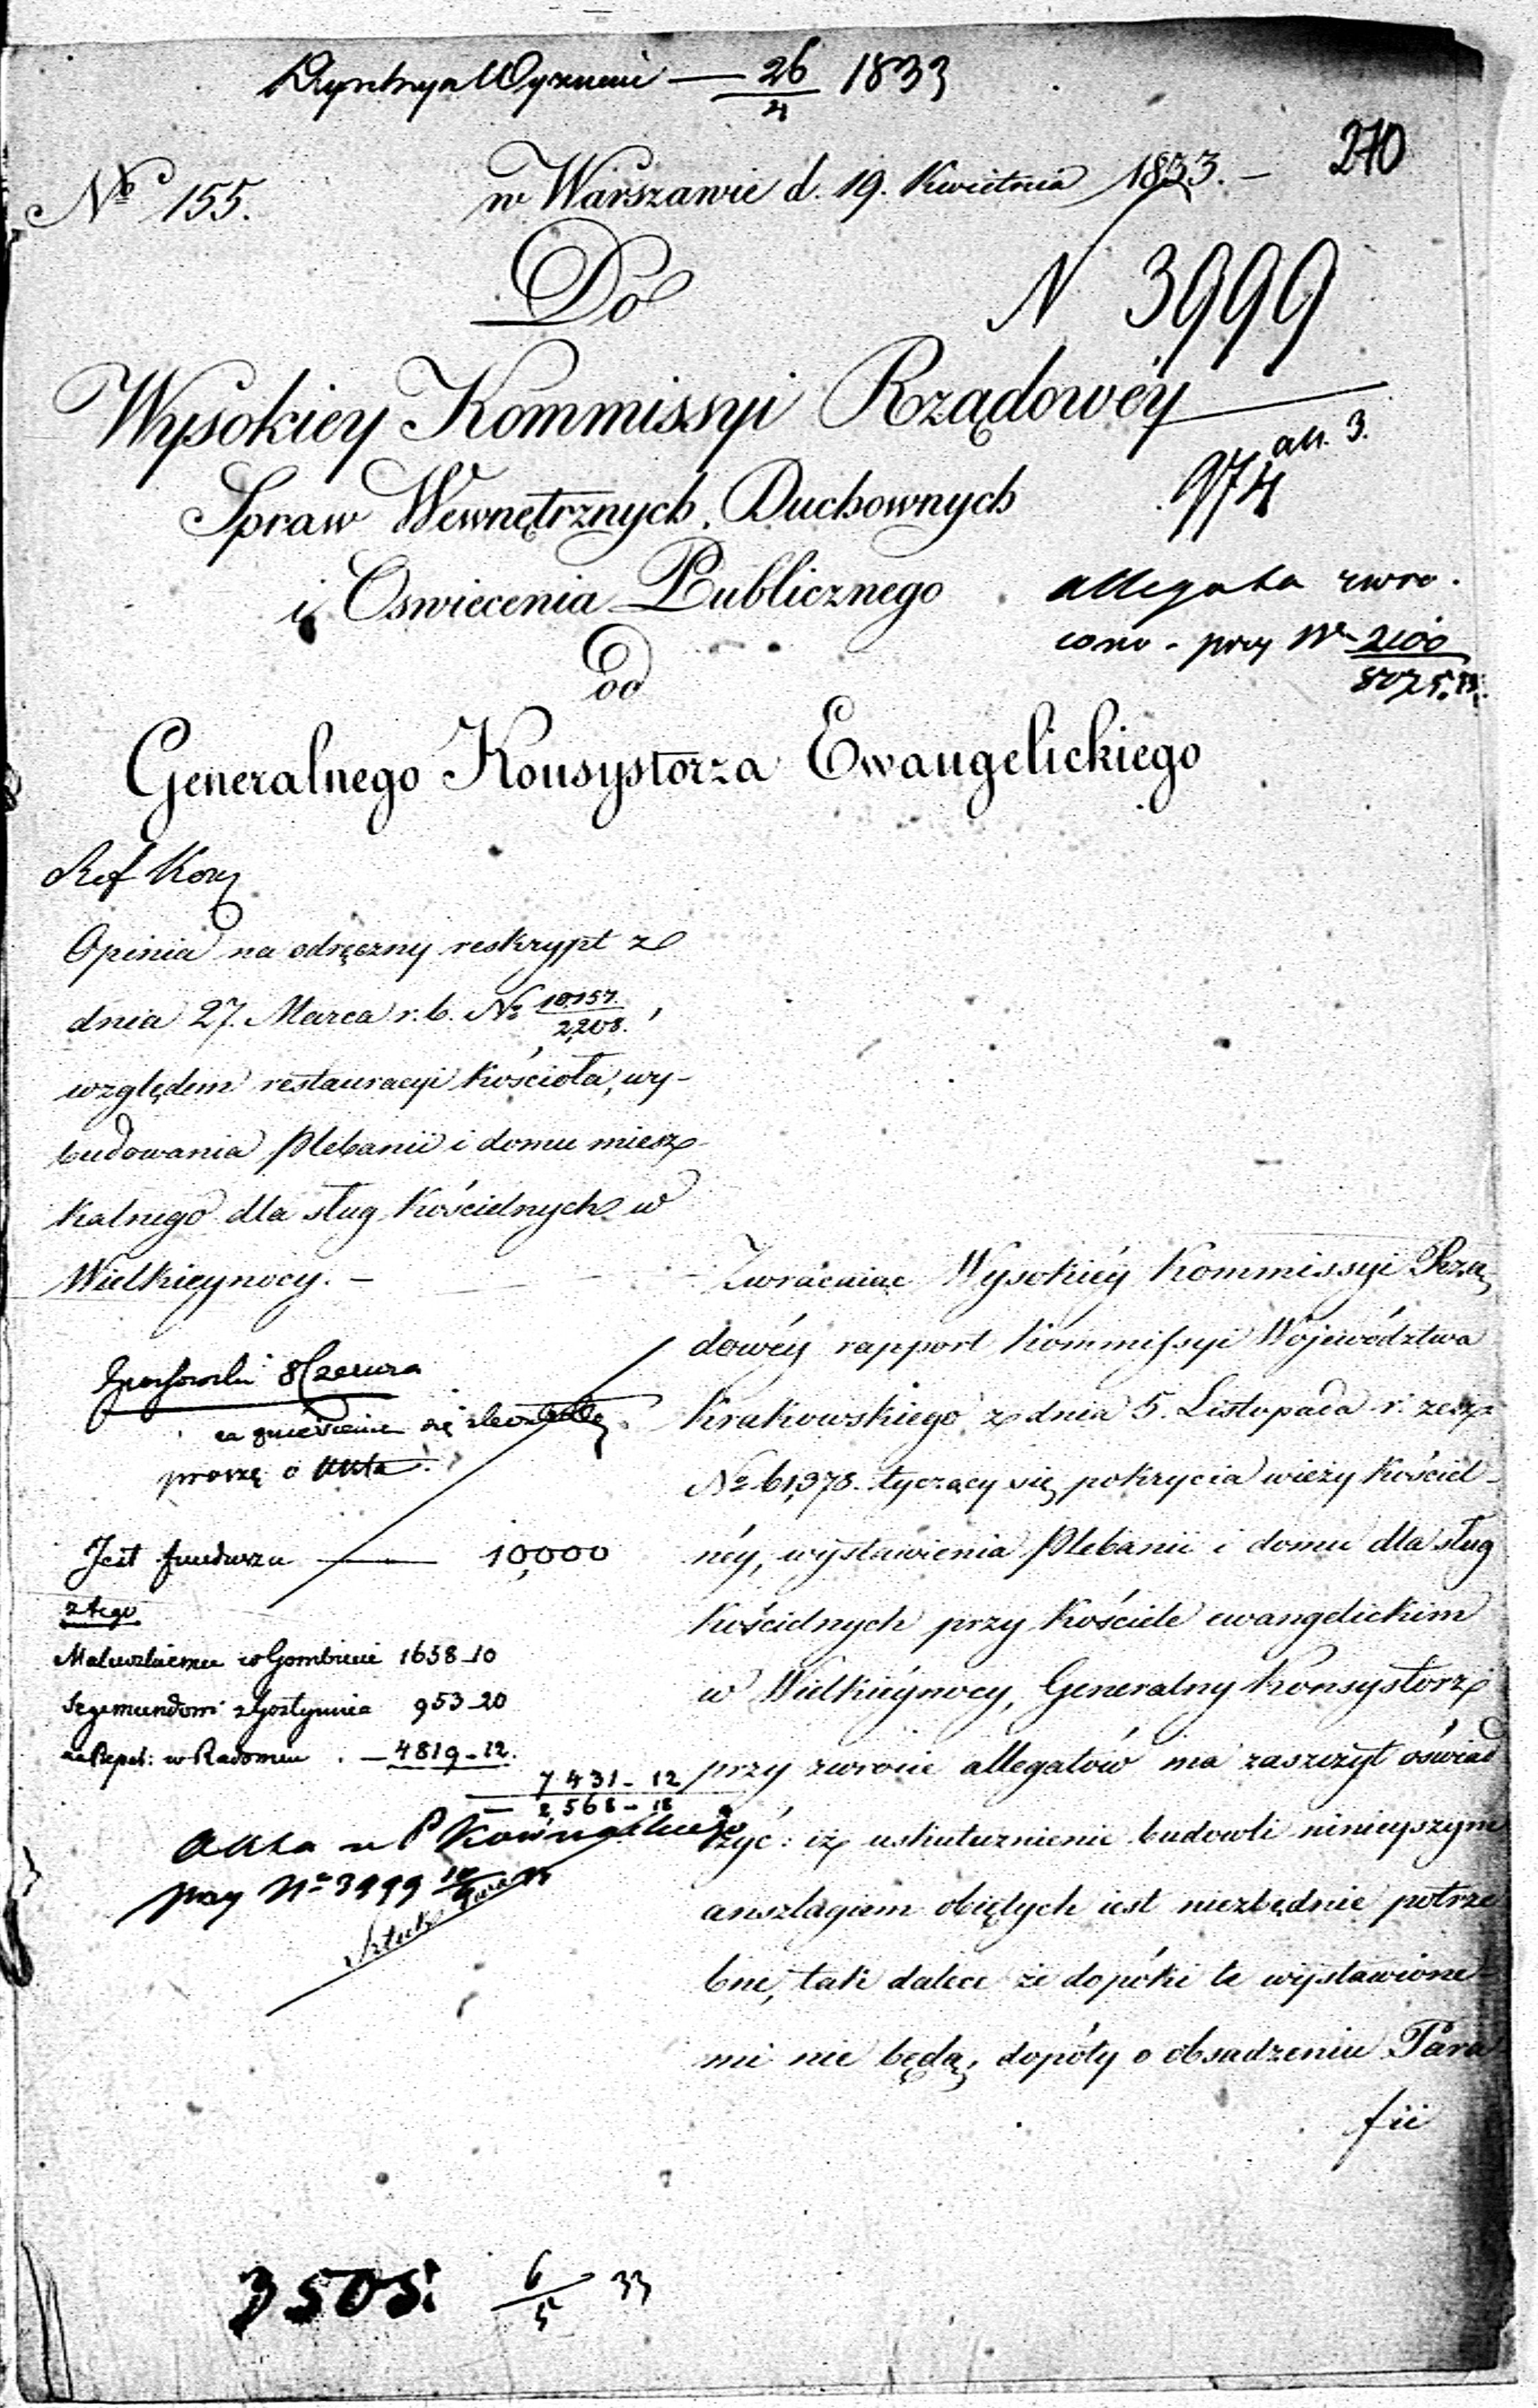 26/4 1833
270
№ 155.
w Warszawie d. 19. Kwietnia 1833. –
Do
N 3999
Wysokiey Kommissyi Rządowéy
all. 3.
974
Spraw Wewnętrznych, Duchownych
i Oswiecenia Publicznego
allegata zwró-
cono - przy Nr 2100
od
Generalnego Konsystorza Ewangelickiego
Ref
Opinia na odręczny reskrypt z
dnia 27. Marca r. b. № 10,157./2,208.,
względem restauracyi kościoła, wy-
budowania Plebanii i domu miesz-
kalnego dla sług Kościelnych w
Wielkieynocy. –
proszę o akta.
Jest funduszu — 10,000
z tego
w Gombinie 1658-10
z Gostynina 953-20
w Radomiu . – 4819-12.
7431-12
– 2,568-18
akta u P
przy № 3999
Zwracaiąc Wysokiéy Kommissyi Rzą-
dowéy rapport Kommissyi Województwa
Krakowskiego z dnia 5. Listopada r. zesz:
№ 61,378. tyczący się pokrycia wieży Kościel-
néy, wystawienia Plebanii i domu dla sług
kościelnych przy Kościele ewangelickim
w Wielkiéynocy, Generalny Konsystorz
przy zwrocie allegatów ma zaszczyt oświad
czyć: iż uskutecznienie budowli ninieyszym
anszlagiem obiętych iest niezbędnie potrze
bne, tak dalece że dopóki te wystawione-
mi nie będą, dopóty o obsadzeniu Para
fii
3505. 6/5 33